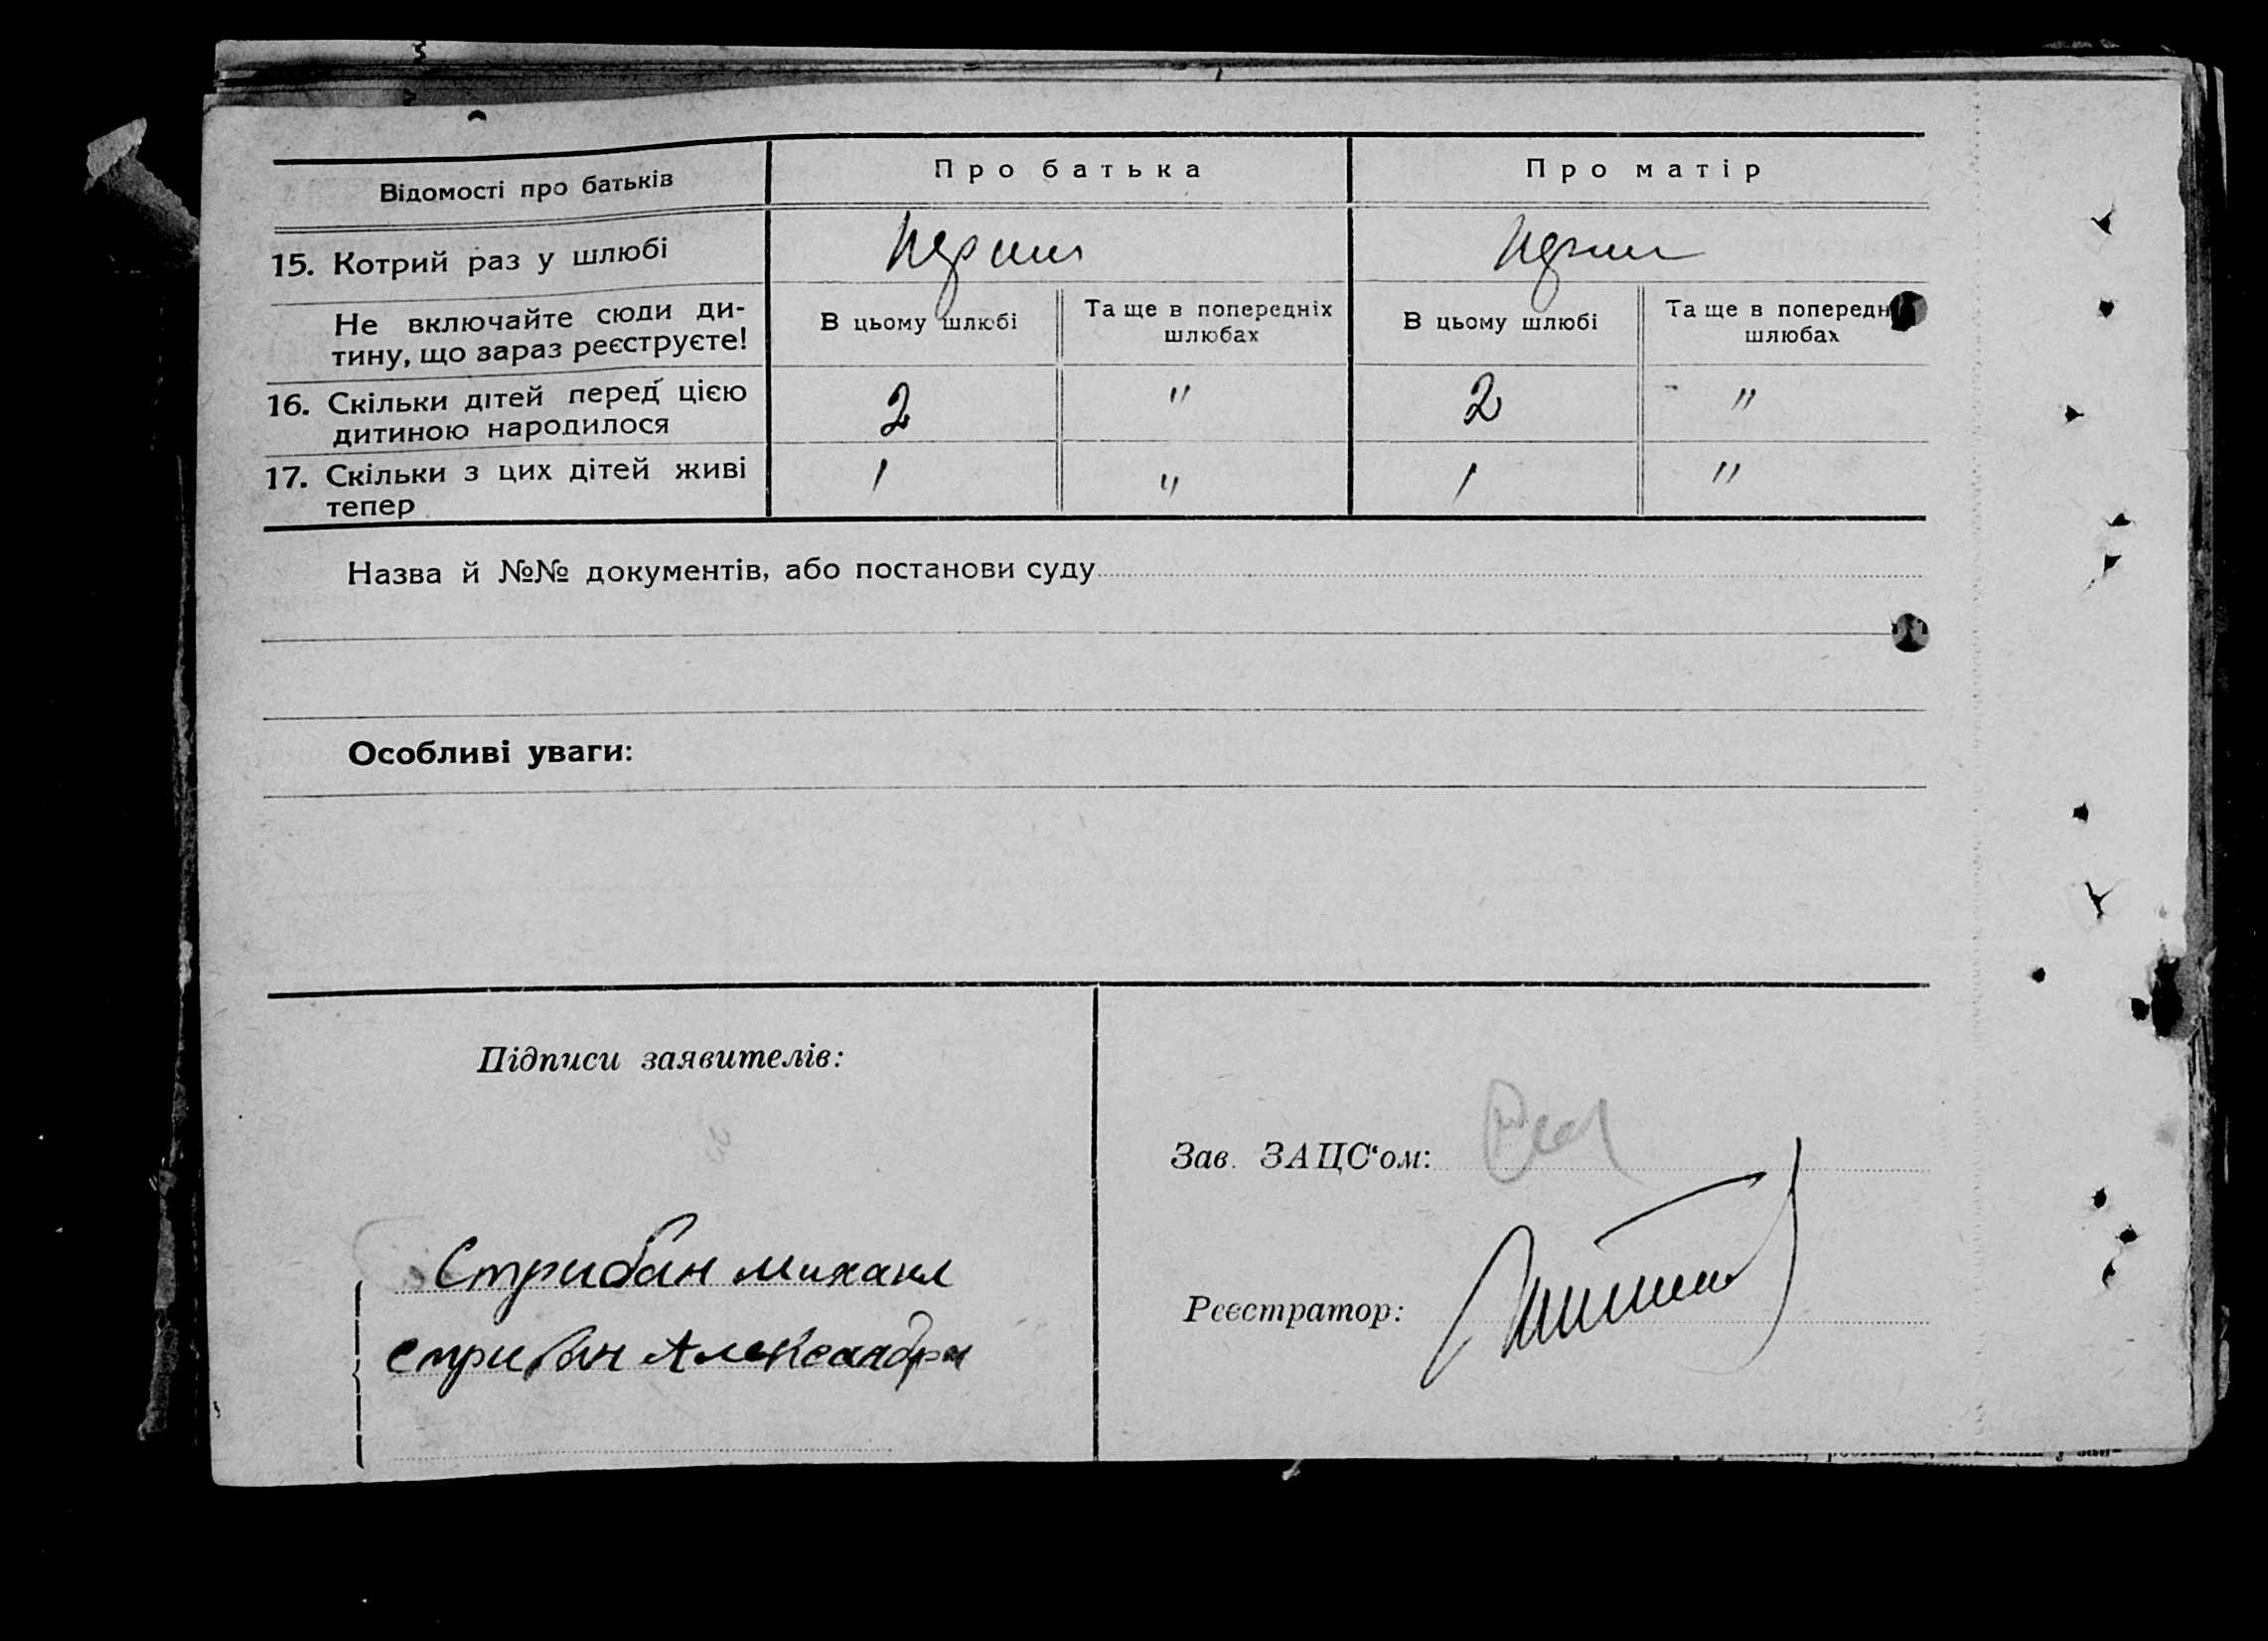 Відомості про батьків
Про батька
Про матір
15. Котрий раз у шлюбі
перший
Не включайте сюди ди-
тину, що зараз реєструєте!
В цьому шлюбі
Та ще в попередніх
шлюбах
В цьому шлюбі
Та ще в попередн
шлюбах
16. Скільки дітей перед цією
дитиною народилося
2 " 2 "
17. Скільки з цих дітей живі
тепер
1 " 1 "
Назва й №№ документів, або постанови суду
Особливі уваги:
Підписи заявителів:
Стрибан Михаил
Стрибан Александра
Зав. ЗАЦС‘ом:
Реєстратор: